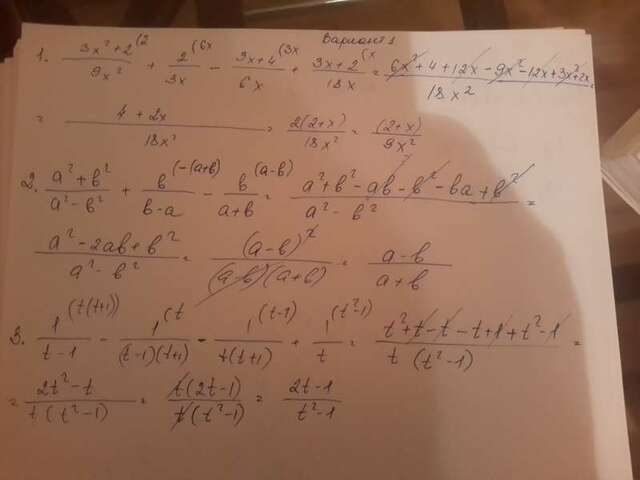 Вариант 1
1. (3x²+2)/(9x²) (2 + 2/(3x) (6x − (3x+4)/(6x) (3x + (3x+2)/(18x) (x = (6x²+4+12x−9x²−12x+3x²+2x)/(18x²) =
= (4+2x)/(18x²) = 2(2+x)/(18x²) = (2+x)/(9x²)
2. (a²+в²)/(a²−в²) + в/(в−a) (−(a+в) − в/(a+в) (a−в) = (a²+в²−aв−в²−вa+в²)/(a²−в²) =
(a²−2aв+в²)/(a²−в²) = (a−в)²/((a−в)(a+в)) = (a−в)/(a+в)
3. 1/(t−1) (t(t+1)) − 1/((t−1)(t+1)) (t − 1/(t(t+1)) (t−1) + 1/t (t²−1) = (t²+t−t−t+1+t²−1)/(t(t²−1)) =
= (2t²−t)/(t(t²−1)) = t(2t−1)/(t(t²−1)) = (2t−1)/(t²−1)